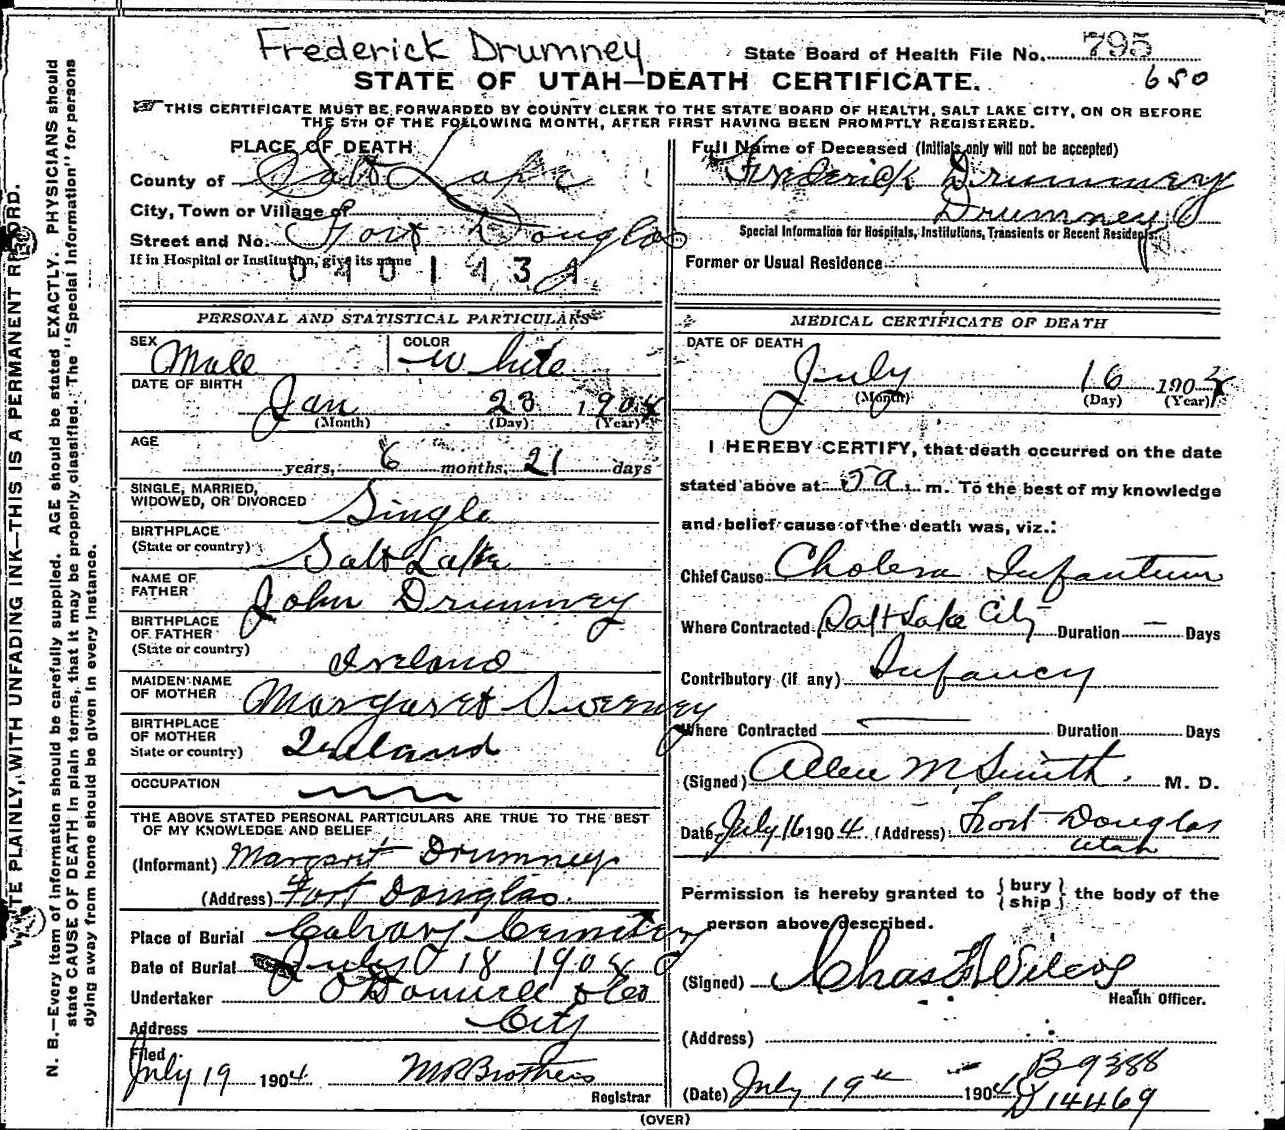 Frederick Drumney
State Board of Health File No. 795
STATE OF UTAH—DEATH CERTIFICATE.
680
THIS CERTIFICATE MUST BE FORWARDED BY COUNTY CLERK TO THE STATE BOARD OF HEALTH, SALT LAKE CITY, ON OR BEFORE
THE 5TH OF THE FOLLOWING MONTH, AFTER FIRST HAVING BEEN PROMPTLY REGISTERED.
WRITE PLAINLY, WITH UNFADING INK—THIS IS A PERMANENT RECORD.
N. B.—Every item of information should be carefully supplied. AGE should be stated EXACTLY. PHYSICIANS should
state CAUSE OF DEATH in plain terms, that it may be properly classified. The "Special Information" for persons
dying away from home should be given in every instance.
PLACE OF DEATH
County of Salt Lake
City, Town or Village of
Street and No. Fort Douglas
If in Hospital or Institution, give its name
0401434
PERSONAL AND STATISTICAL PARTICULARS
SEX Male COLOR White
DATE OF BIRTH Jan 23 1904
(Month) (Day) (Year)
AGE
years, 6 months, 21 days
SINGLE, MARRIED,
WIDOWED, OR DIVORCED Single
BIRTHPLACE
(State or country) Salt Lake
NAME OF
FATHER John Drumney
BIRTHPLACE
OF FATHER
(State or country) Ireland
MAIDEN NAME
OF MOTHER Margaret Sweeney
BIRTHPLACE
OF MOTHER
State or country) Ireland
OCCUPATION
THE ABOVE STATED PERSONAL PARTICULARS ARE TRUE TO THE BEST
OF MY KNOWLEDGE AND BELIEF
(Informant) Margaret Drumney
(Address) Fort Douglas.
Place of Burial Calvary Cemetery
Date of Burial July 18 1904
Undertaker O'Donnell & Co
Address City
Filed
July 19 1904 M R Brothers
Registrar
Full Name of Deceased (Initials only will not be accepted)
Frederick Drummery
Drumney
Special Information for Hospitals, Institutions, Transients or Recent Residents.
Former or Usual Residence
MEDICAL CERTIFICATE OF DEATH
DATE OF DEATH
July 16 1904
(Month) (Day) (Year)
I HEREBY CERTIFY, that death occurred on the date
stated above at 5 a. m. To the best of my knowledge
and belief cause of the death was, viz.:
Chief Cause Cholera Infantum
Where Contracted Salt Lake City Duration — Days
Contributory (if any) Infancy
Where Contracted — Duration Days
(Signed) Allen M Smith. M. D.
Date July 16 1904 (Address) Fort Douglas
Utah
Permission is hereby granted to {bury
ship} the body of the
person above described.
(Signed) Chas F Wilcox
Health Officer.
(Address)
B 9388
(Date) July 19th 1904 D 14469
(OVER)